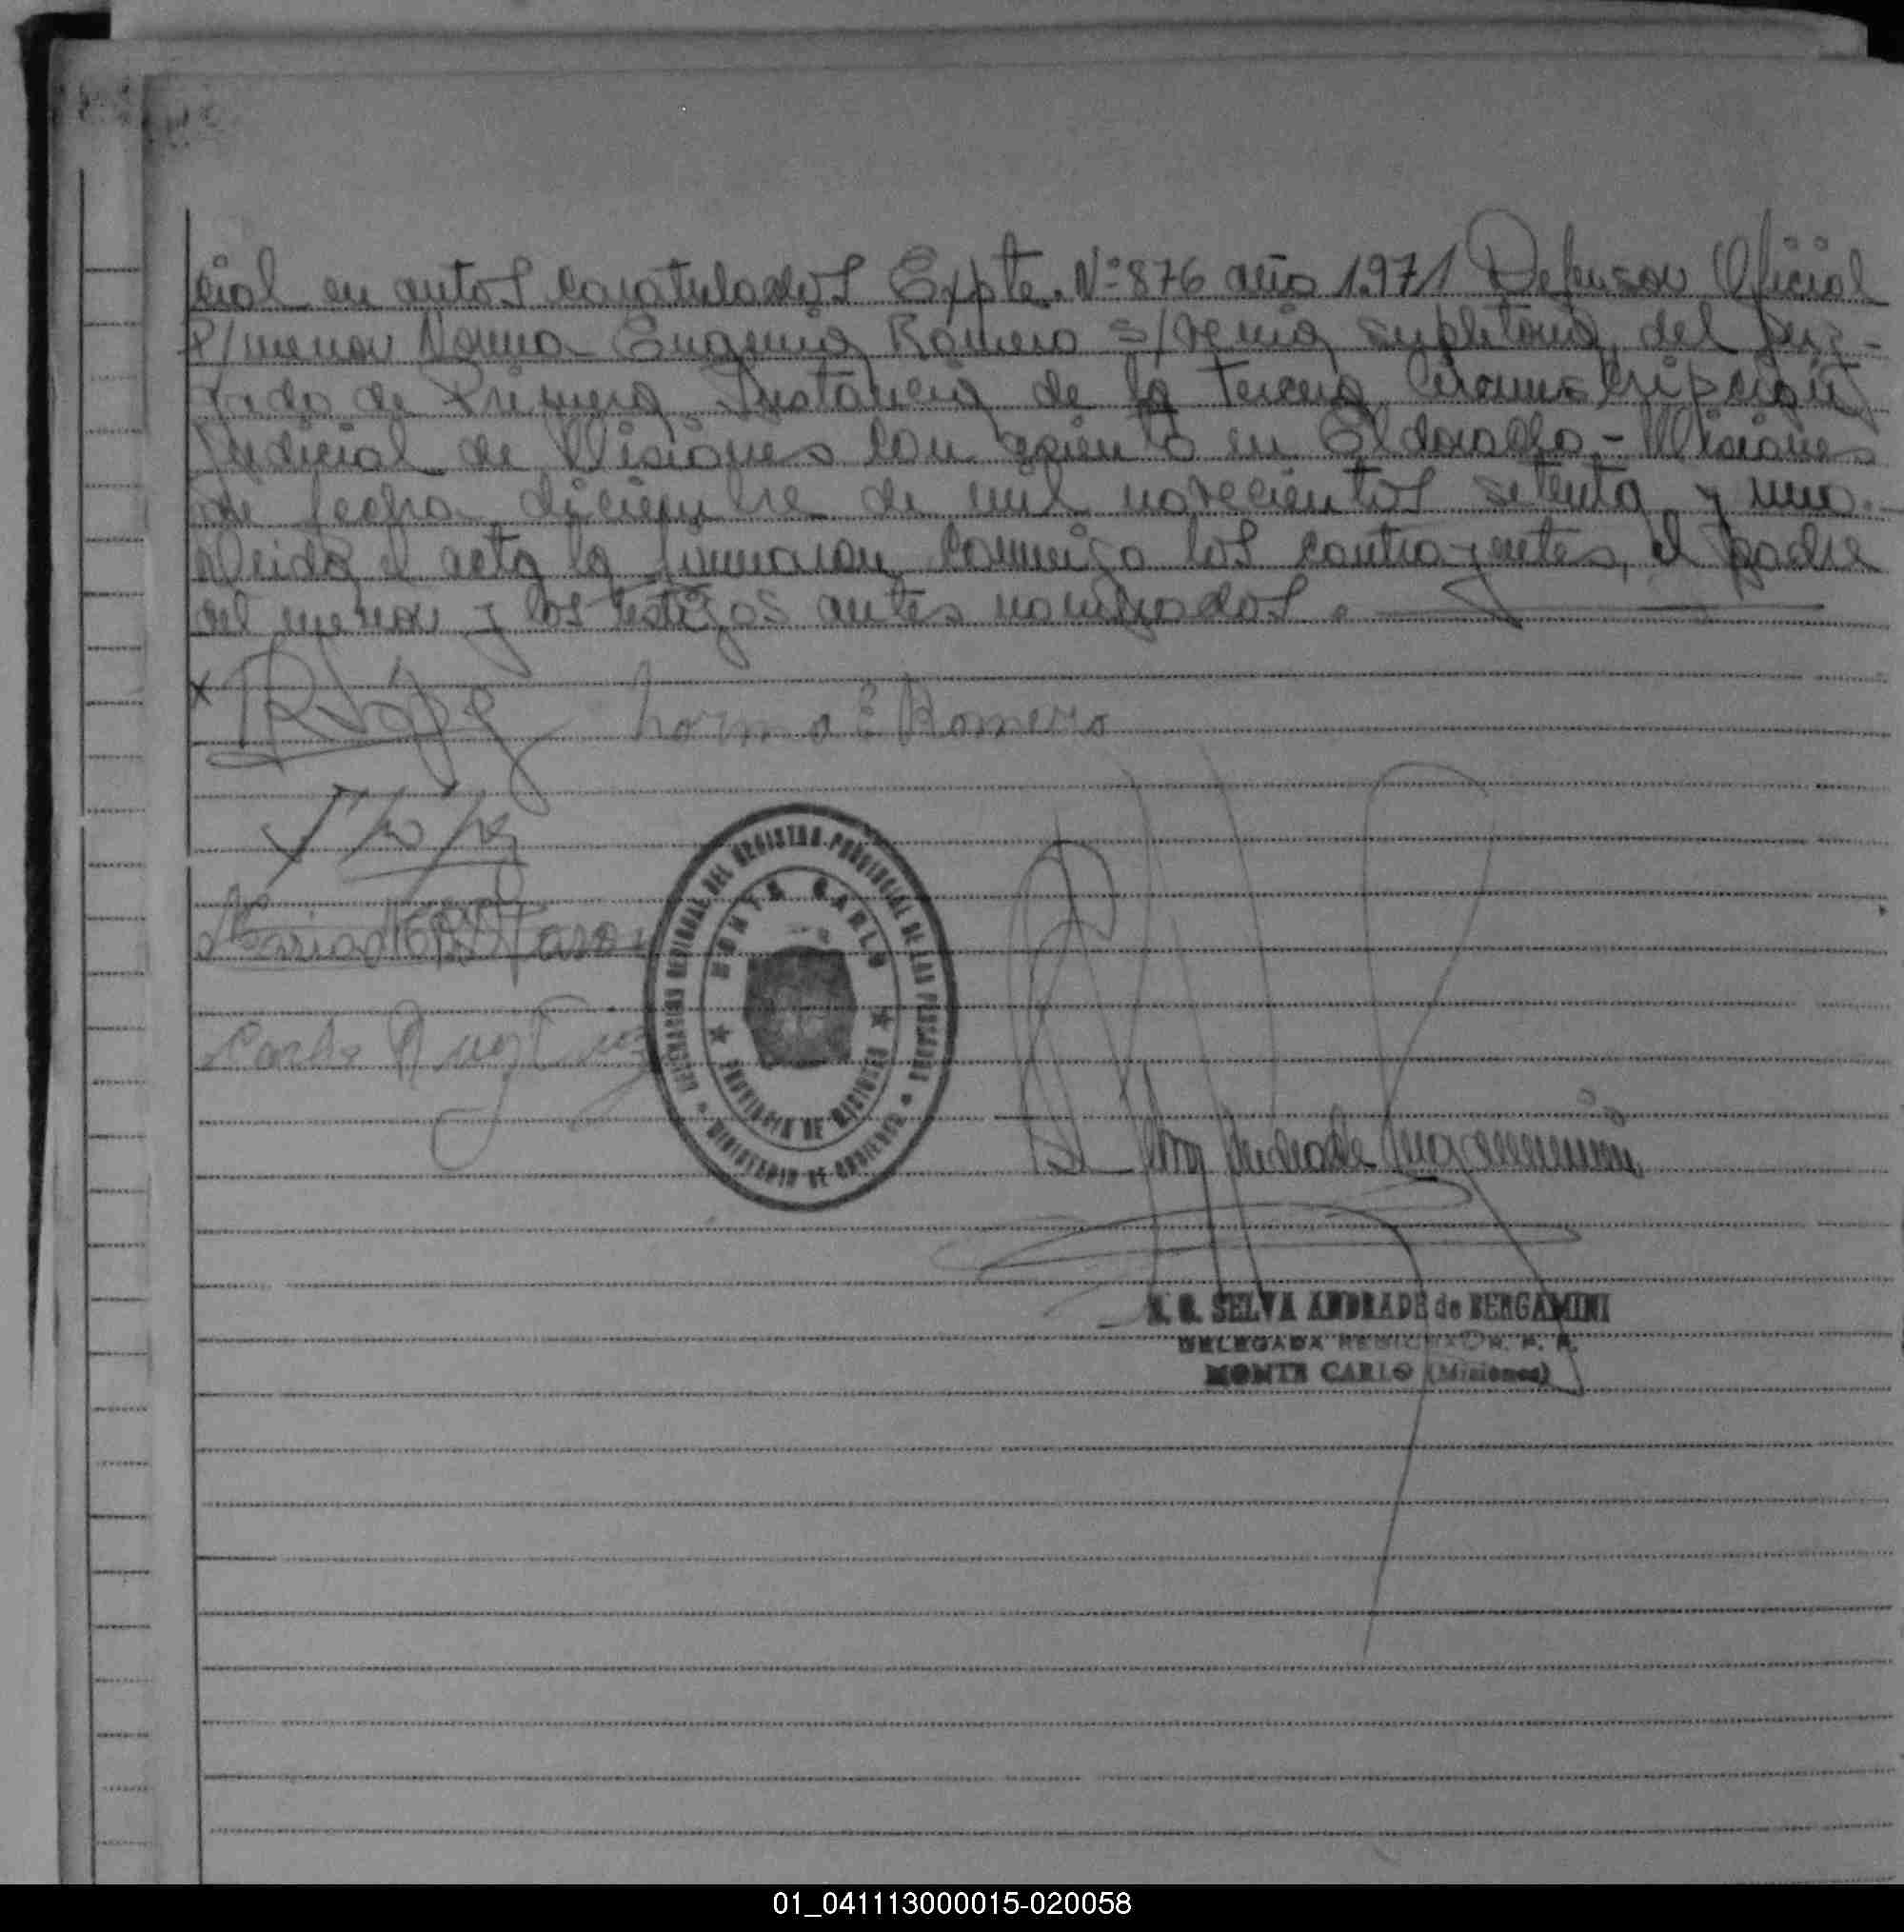 cial en autos caratulados Expte. Nº 876 año 1.971 Defensor Oficial
P/menor Norma Eugenia Romero S/venia supletoria, del Juz-
gado de Primera Instancia de la tercera Circunscripción
Judicial de Misiones con asiento en Eldorado - Misiones
de fecha diciembre de mil novecientos setenta y uno.-
Leida el acta la firmaron conmigo los contrayentes, el padre
del menor y los testigos antes nombrados.
X
Norma E Romero
DELEGACION REGIONAL DEL REGISTRO PROVINCIAL DE LAS PERSONAS
MINISTERIO DE GOBIERNO
MONTE CARLO
PROVINCIA DE MISIONES
Carlos
Andrade
SELVA ANDRADE de BERGAMINI
DELEGADA REGIONAL R. P. P.
MONTE CARLO (Misiones)
01_041113000015-020058